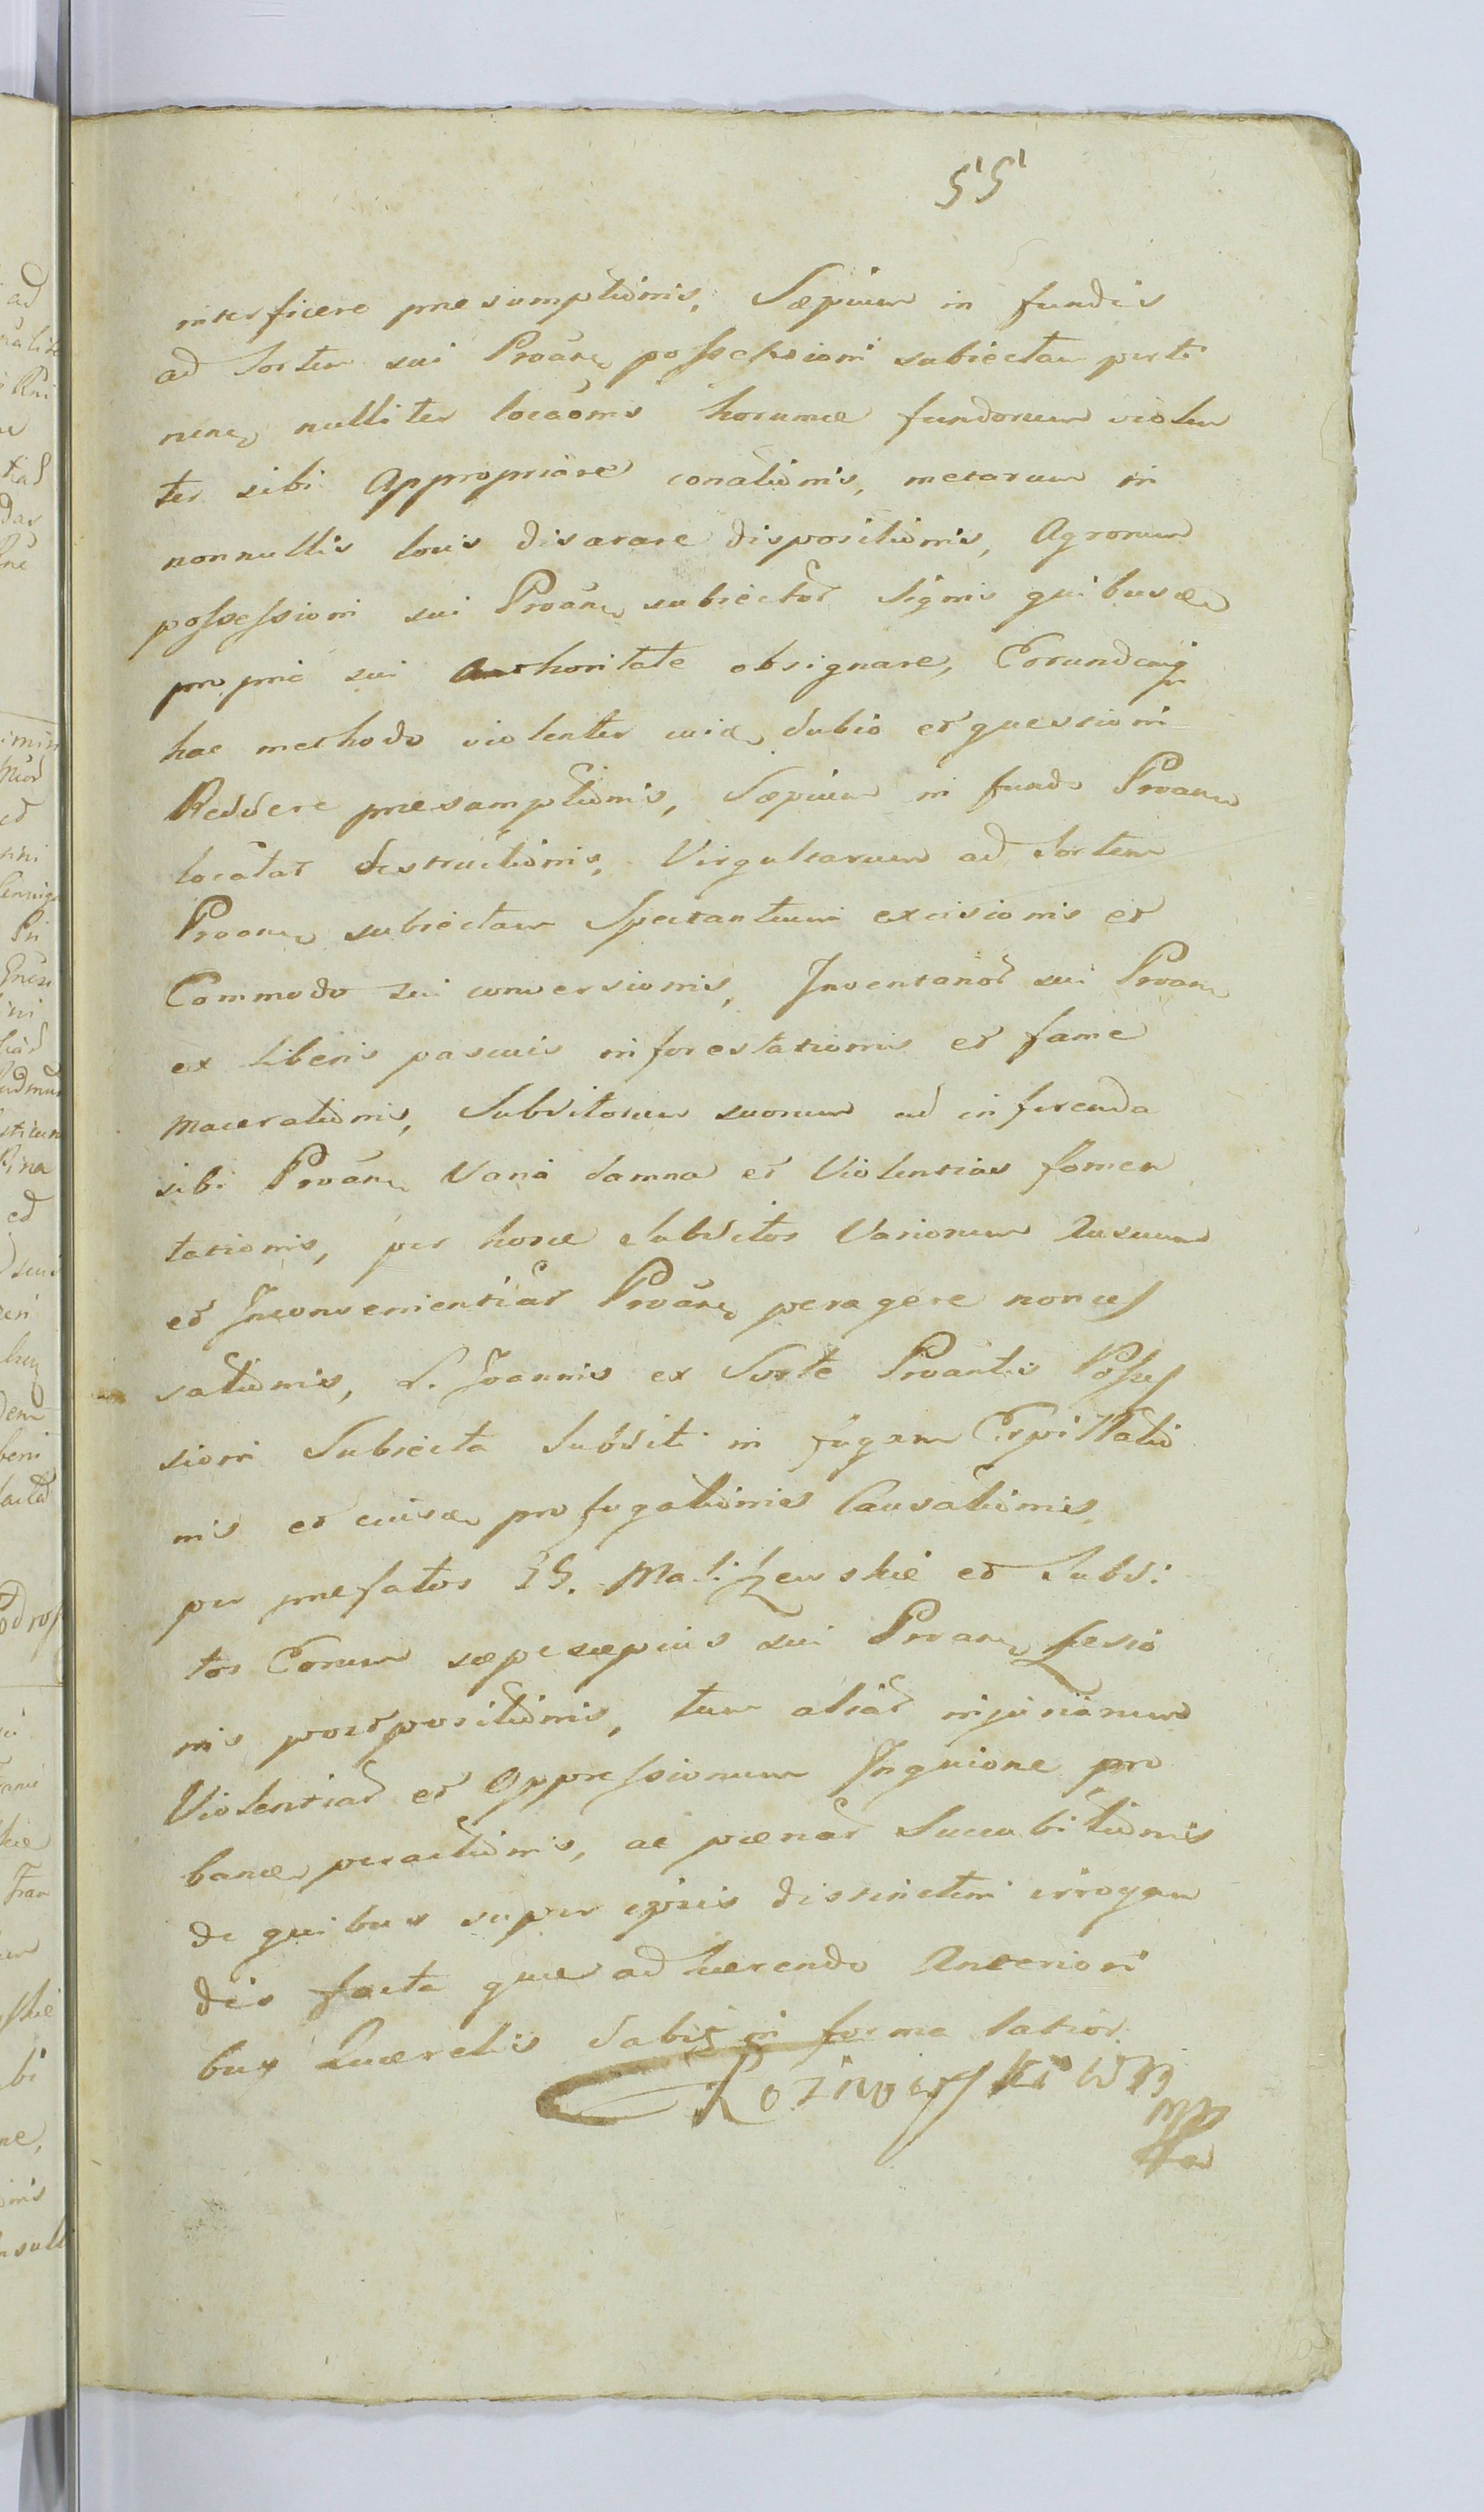 55
interficere praesumptionis, Sæpium in fundis
ad Sortem sui Proãn possessioni subiectam perti
nen nulliter locaõnis horumce fundorum violen
ter sibi Appropriare conationis, metarum in
nonnullis locis disarare dispositionis, Agrorum
possessioni sui Proãn subiector Signis quibusd
propria sui Authoritate obsignare, Eorundemq
hac methodo violenter dubio et questioni
Reddere praesumptionis, Sæpium in fundo Proan
locatar destructionis, Virgultarum ad Sortem
Proan subiectam Spectantium excisionis et
Commodo sui conversionis, Inventarior sui Proan
ex liberis pascuis inforestationis et fame
macerationis, Subditorum suorum ad inferenda
sibi Proãn Varia damna et Violentias fomen
tationis, per hosce Subditos Variorum Ausuum
et Inconvenientiar Proãn peragere non ces
sationis, L. Joannis ex Sorte Proantis Posses
sioni Subiecta Subditi in fugam Expillatio
nis et profugationis Causationis,
per praefatos GG. Maliszewskie et Subdi
tos Eorum sæpesæpius sui Proan Lesio
nis postpositionis, tum aliar injuriarum
Violentiar et Oppressionum Inquione pro
banda peractionis, ac pœnar Succubitionis
de quibus super ipsis districtim irrogan
dis facta quæ adhærendo Anteriori
bus Quærelis dabit in forma latior.
Kozinowski WB
mp